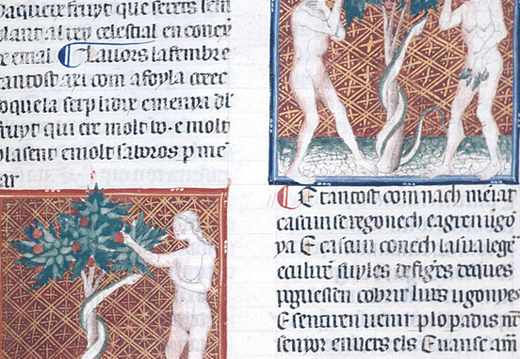 daqueix fruyt que serets sem
blant al rey celestial en coney
xe ental. Lauors la fembra
tantost axi com a folla creec
ço que la serp li dix e menya dl
fruyt qui ere molt bo. e molt
plasent e molt saboros p me
iar
E tantost com nach meiat
cascun se regonech e agren ugo
ya E cascun conech la sua lege
e culire fuyles de figes de ques
pguessen cobrir lurs ugonyes
E sentiren uenir p lo padis nre
senyor enuers els E uanse am